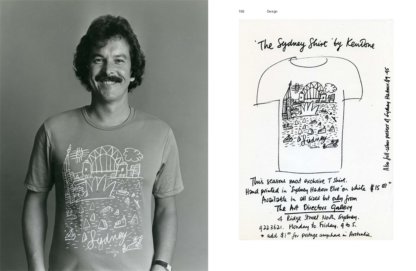 Sydney
198
Design
'The Sydney Shirt' by Ken Done
Sydney
This seasons most exclusive T Shirt.
Hand printed in 'Sydney Harbour Blue' on white $15.00
Available in all sizes but only from
The Art Directors Gallery
Ridge Street North Sydney.
Monday to Friday, 9 to 5.
add $1.00 for postage anywhere in Australia
Also full colour poster of Sydney Harbour